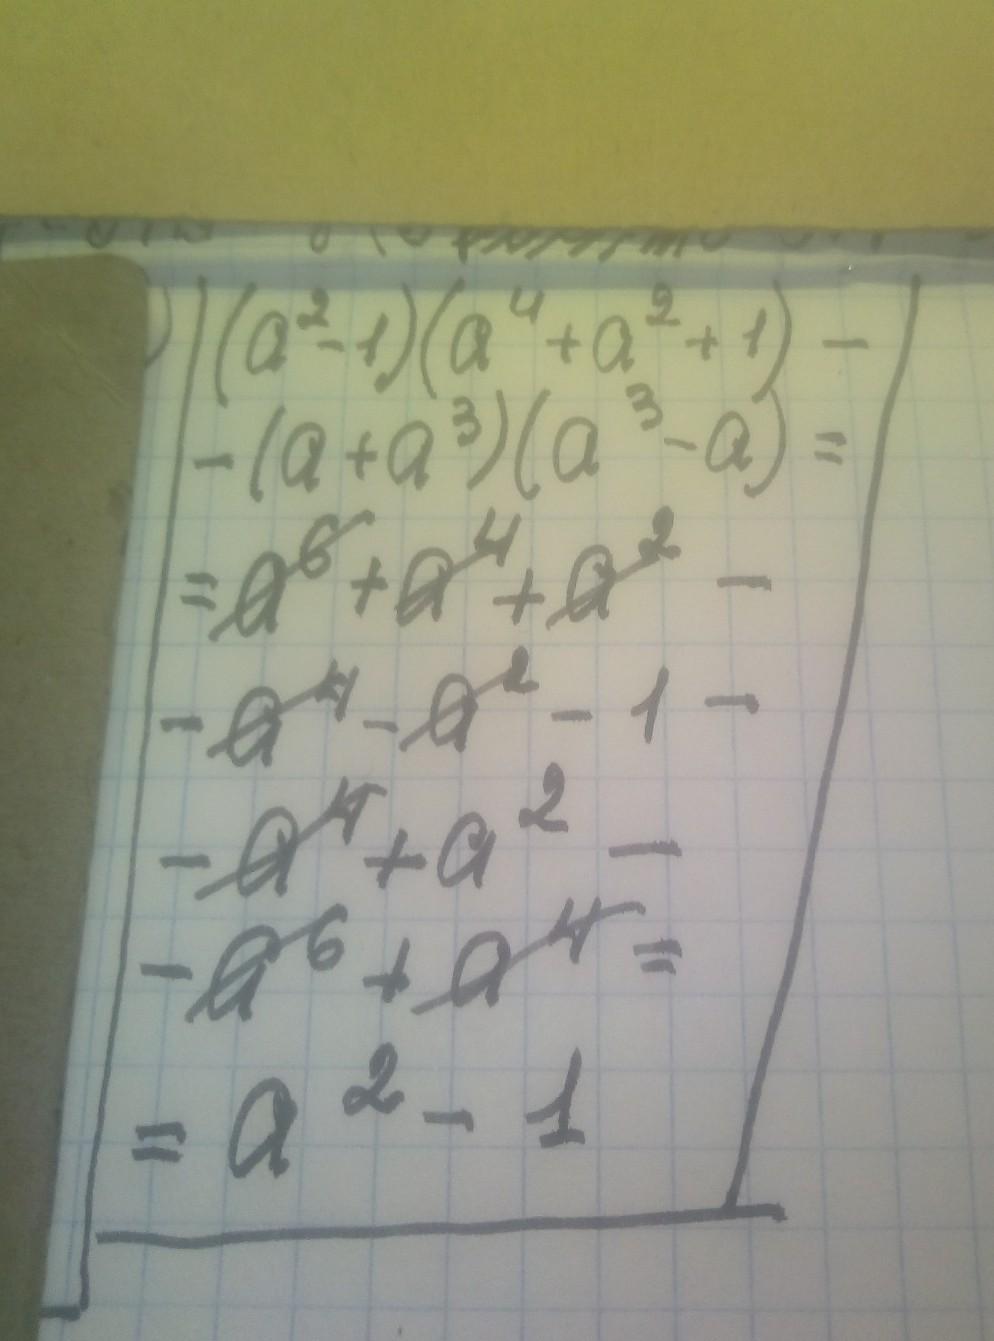 (a²-1)(a⁴+a²+1)-
-(a+a³)(a³-a)=
=a⁶+a⁴+a²-
-a⁴-a²-1-
-a⁴+a²-
-a⁶+a⁴=
=a²-1